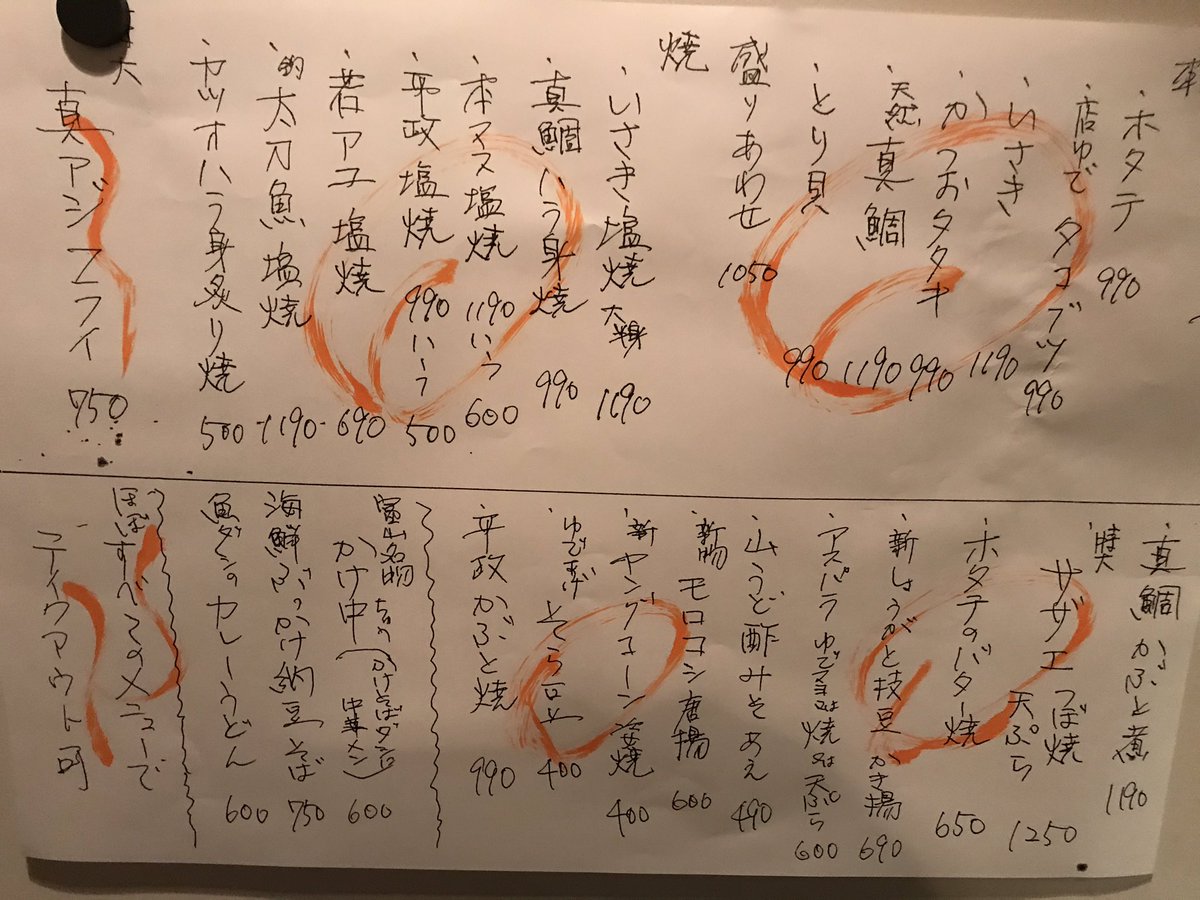 ホタテ 990
店ゆで タコブツ 990
いさき 1190
かつおタタキ 990
天然真鯛 1190
とり貝 990
盛りあわせ 1050
焼
いさき塩焼 1190
真鯛ハラ身焼 990
本マス塩焼 1190 ハーフ 600
平政塩焼 990 ハーフ 500
若アユ塩焼 690
釣太刀魚塩焼 1190
カツオハラ身炙り焼 500
大
真アジフライ 750
真鯛かぶと煮 1190
サザエ つぼ焼 天ぷら 1250
ホタテのバター焼 650
新しょうがと枝豆かき揚 690
アスパラ ゆでマヨ又は焼又は天ぷら 600
山うど酢みそあえ 490
新物 モロコシ唐揚 600
新ヤングコーン姿焼 400
ゆでたて とら豆 400
平政かぶと焼 990
富山名物 かけ中(かけそばダシ 中華メン) 600
海鮮ぶっかけ納豆そば 750
魚ダシのカレーうどん 600
ほぼすべてのメニューで
テイクアウト可